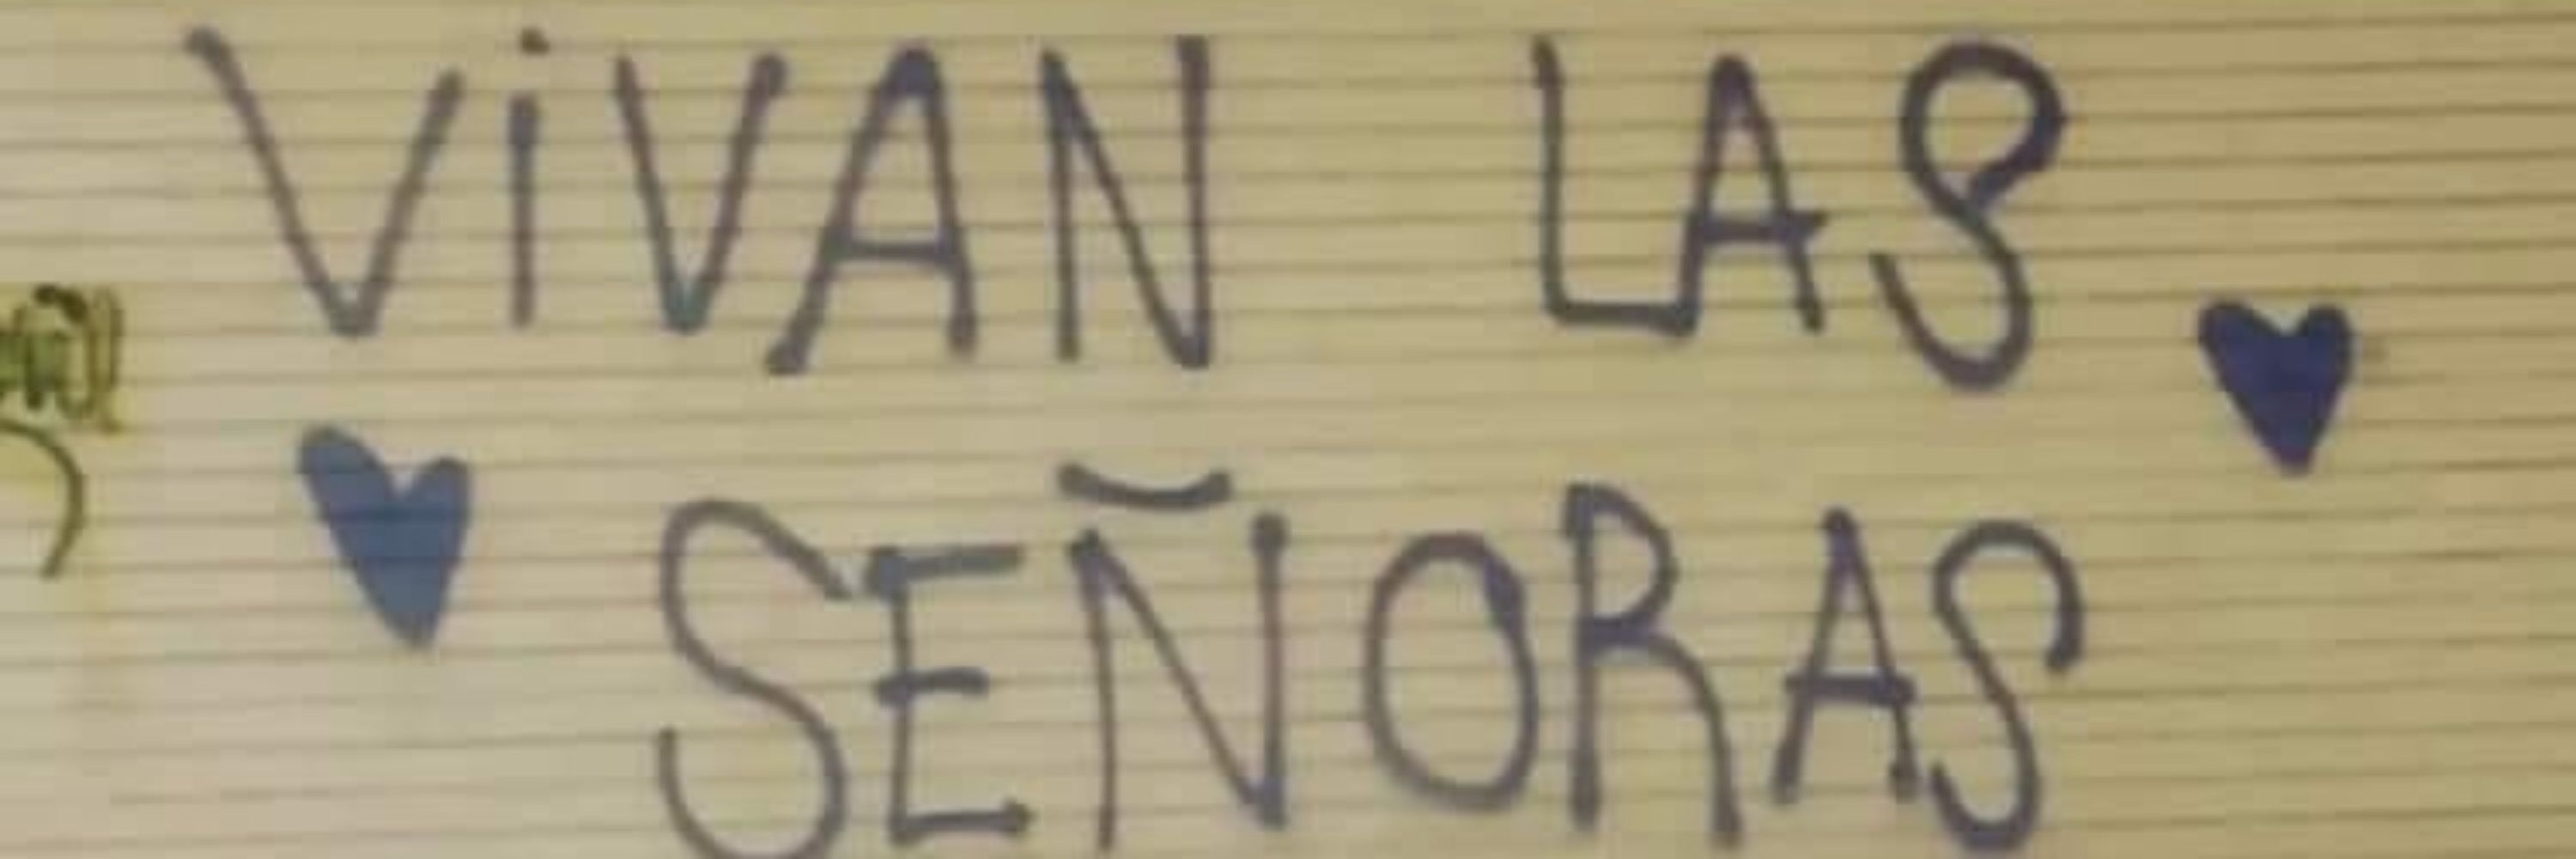 ViVAN LAS
SEÑORAS